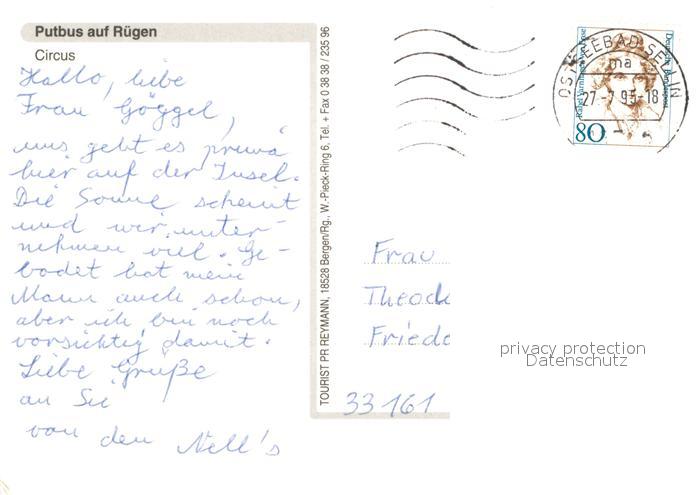 Putbus auf Rügen
Circus
Hallo, liebe
Frau Göggel,
uns geht es prima
hier auf der Insel.
Die Sonne scheint
und wir unter-
nehmen viel. Ge-
badet hat mein
Mann auch schon,
aber ich bin noch
vorsichtig damit.
Liebe Grüße
an Sie
von den Nell's
TOURIST PR REYMANN, 18528 Bergen/Rg., W.-Pieck-Ring 6, Tel. + Fax 0 38 38 / 235 96
OSTSEEBAD SELLIN
ma
27.-7.95-18
Deutsche Bundespost
80
Frau
Theod
Friedr
33161
privacy protection
Datenschutz